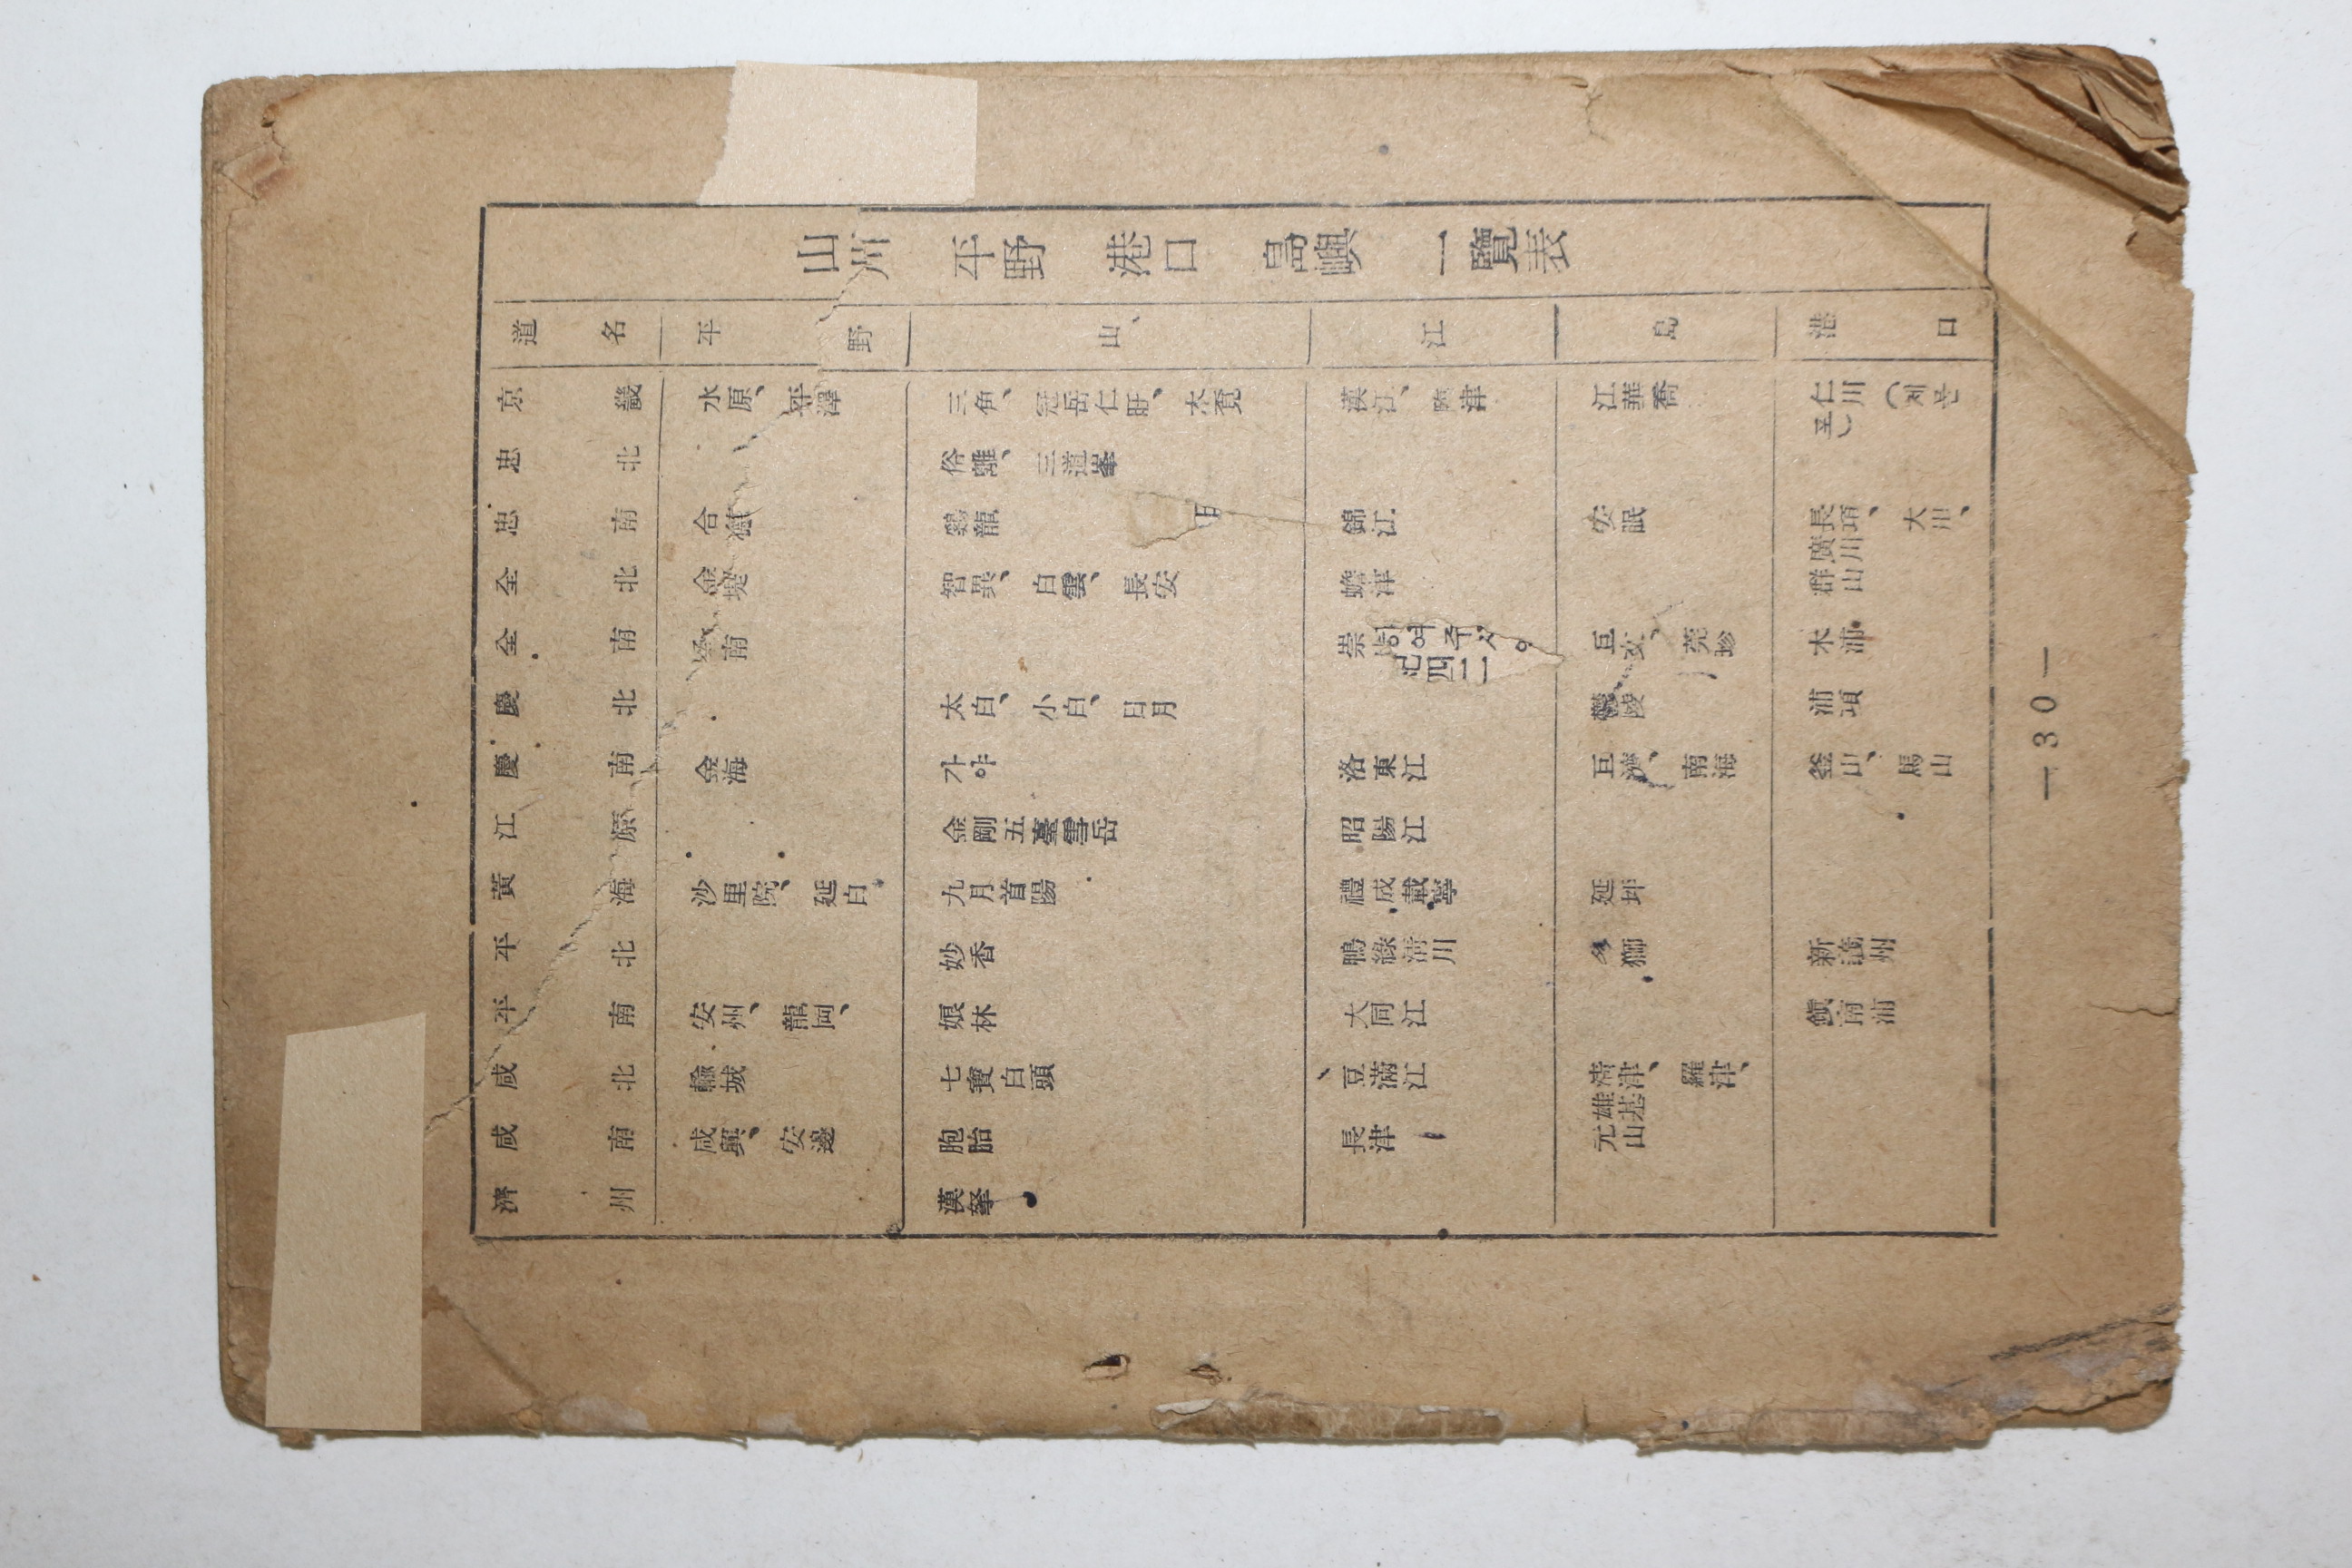 山川 平野 港口 島嶼 一覽表
道名 平野 山 江 島 港口
京畿 水原、平澤 三角、冠岳仁旺、 漢江、臨津 江華喬 仁川(제문포)
忠北 俗離、三道峯
忠南 合 鷄龍 錦江 安眠 廣川長項、大川、
全北 金堤 智異、白雲、長安 蟾津 群山
全南 南 巨文、莞珍 木浦
慶北 太白、小白、日月 鬱陵 浦項
慶南 金海 가야 洛東江 巨濟、南海 釜山、馬山
江原 金剛五臺雪岳 昭陽江
黃海 沙里院、延白 九月首陽 禮成載寧 延坪
平北 妙香 鴨綠淸川 多獅 新義州
平南 安州、龍岡、 娘林 大同江 鎭南浦
咸北 輸城 七寶白頭 豆滿江 雄基淸津、羅津、
咸南 咸興、安邊 胞胎 長津 元山
濟州 漢拏
— 30 —